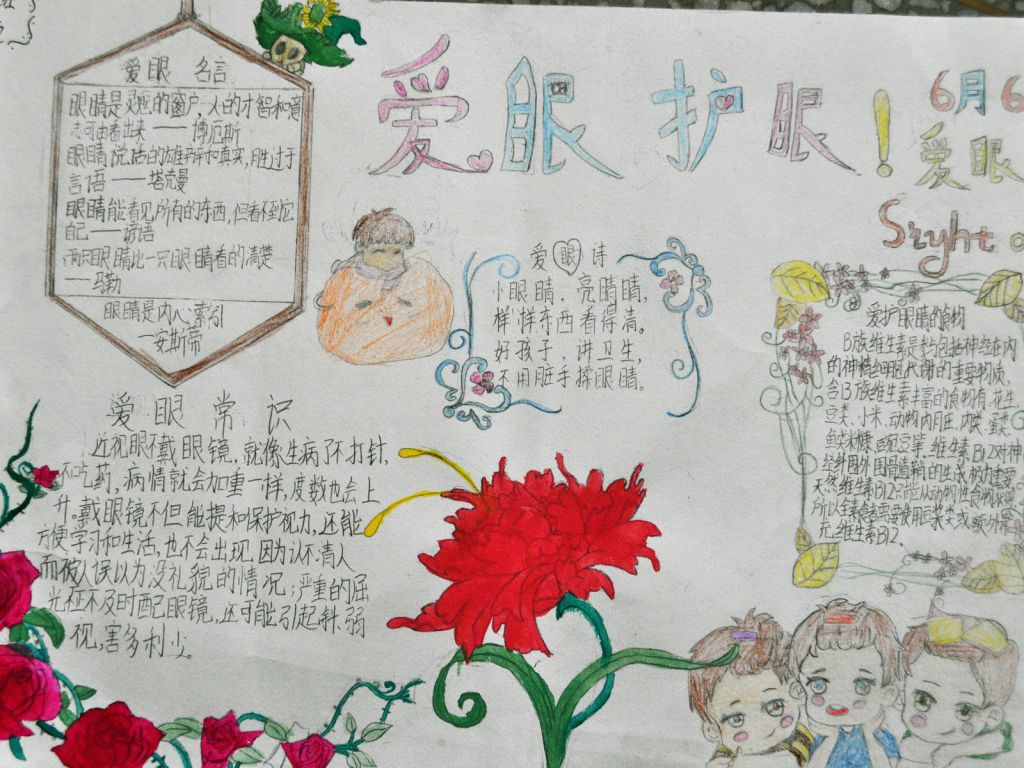 爱眼护眼!
6月6
爱眼
Sight
爱眼 名言
眼睛是灵魂的窗户,人的才智和意
志可由看出来——博厄斯
眼睛说话的雄辩和真实,胜过于
言语——塔克曼
眼睛能看见所有的东西,但看不到它
自己——谚语
两只眼睛比一只眼睛看的清楚
——马勒
眼睛是内心索引
—安斯蒂
爱眼诗
小眼睛,亮晶晶,
样样东西看得清。
好孩子,讲卫生,
不用脏手揉眼睛。
爱护眼睛的食物
B族维生素是
的神经细胞代谢的重要物质,
含B族维生素丰富的食物有花生、
豆类、小米、动物内脏、肉类、蛋类、
维生素B12对神
天然维生素B12只能从动物性食物
所以素食者需要食用
充维生素B12。
爱眼常识
近视眼不戴眼镜,就像生病了不打针,
不吃药,病情就会加重一样,度数也会上
升。戴眼镜不但能提和保护视力,还能
方便学习和生活,也不会出现因为认不清人
而被人误以为没礼貌的情况;严重的屈
光在不及时配眼镜,还可能引起斜弱
视,害多利少。